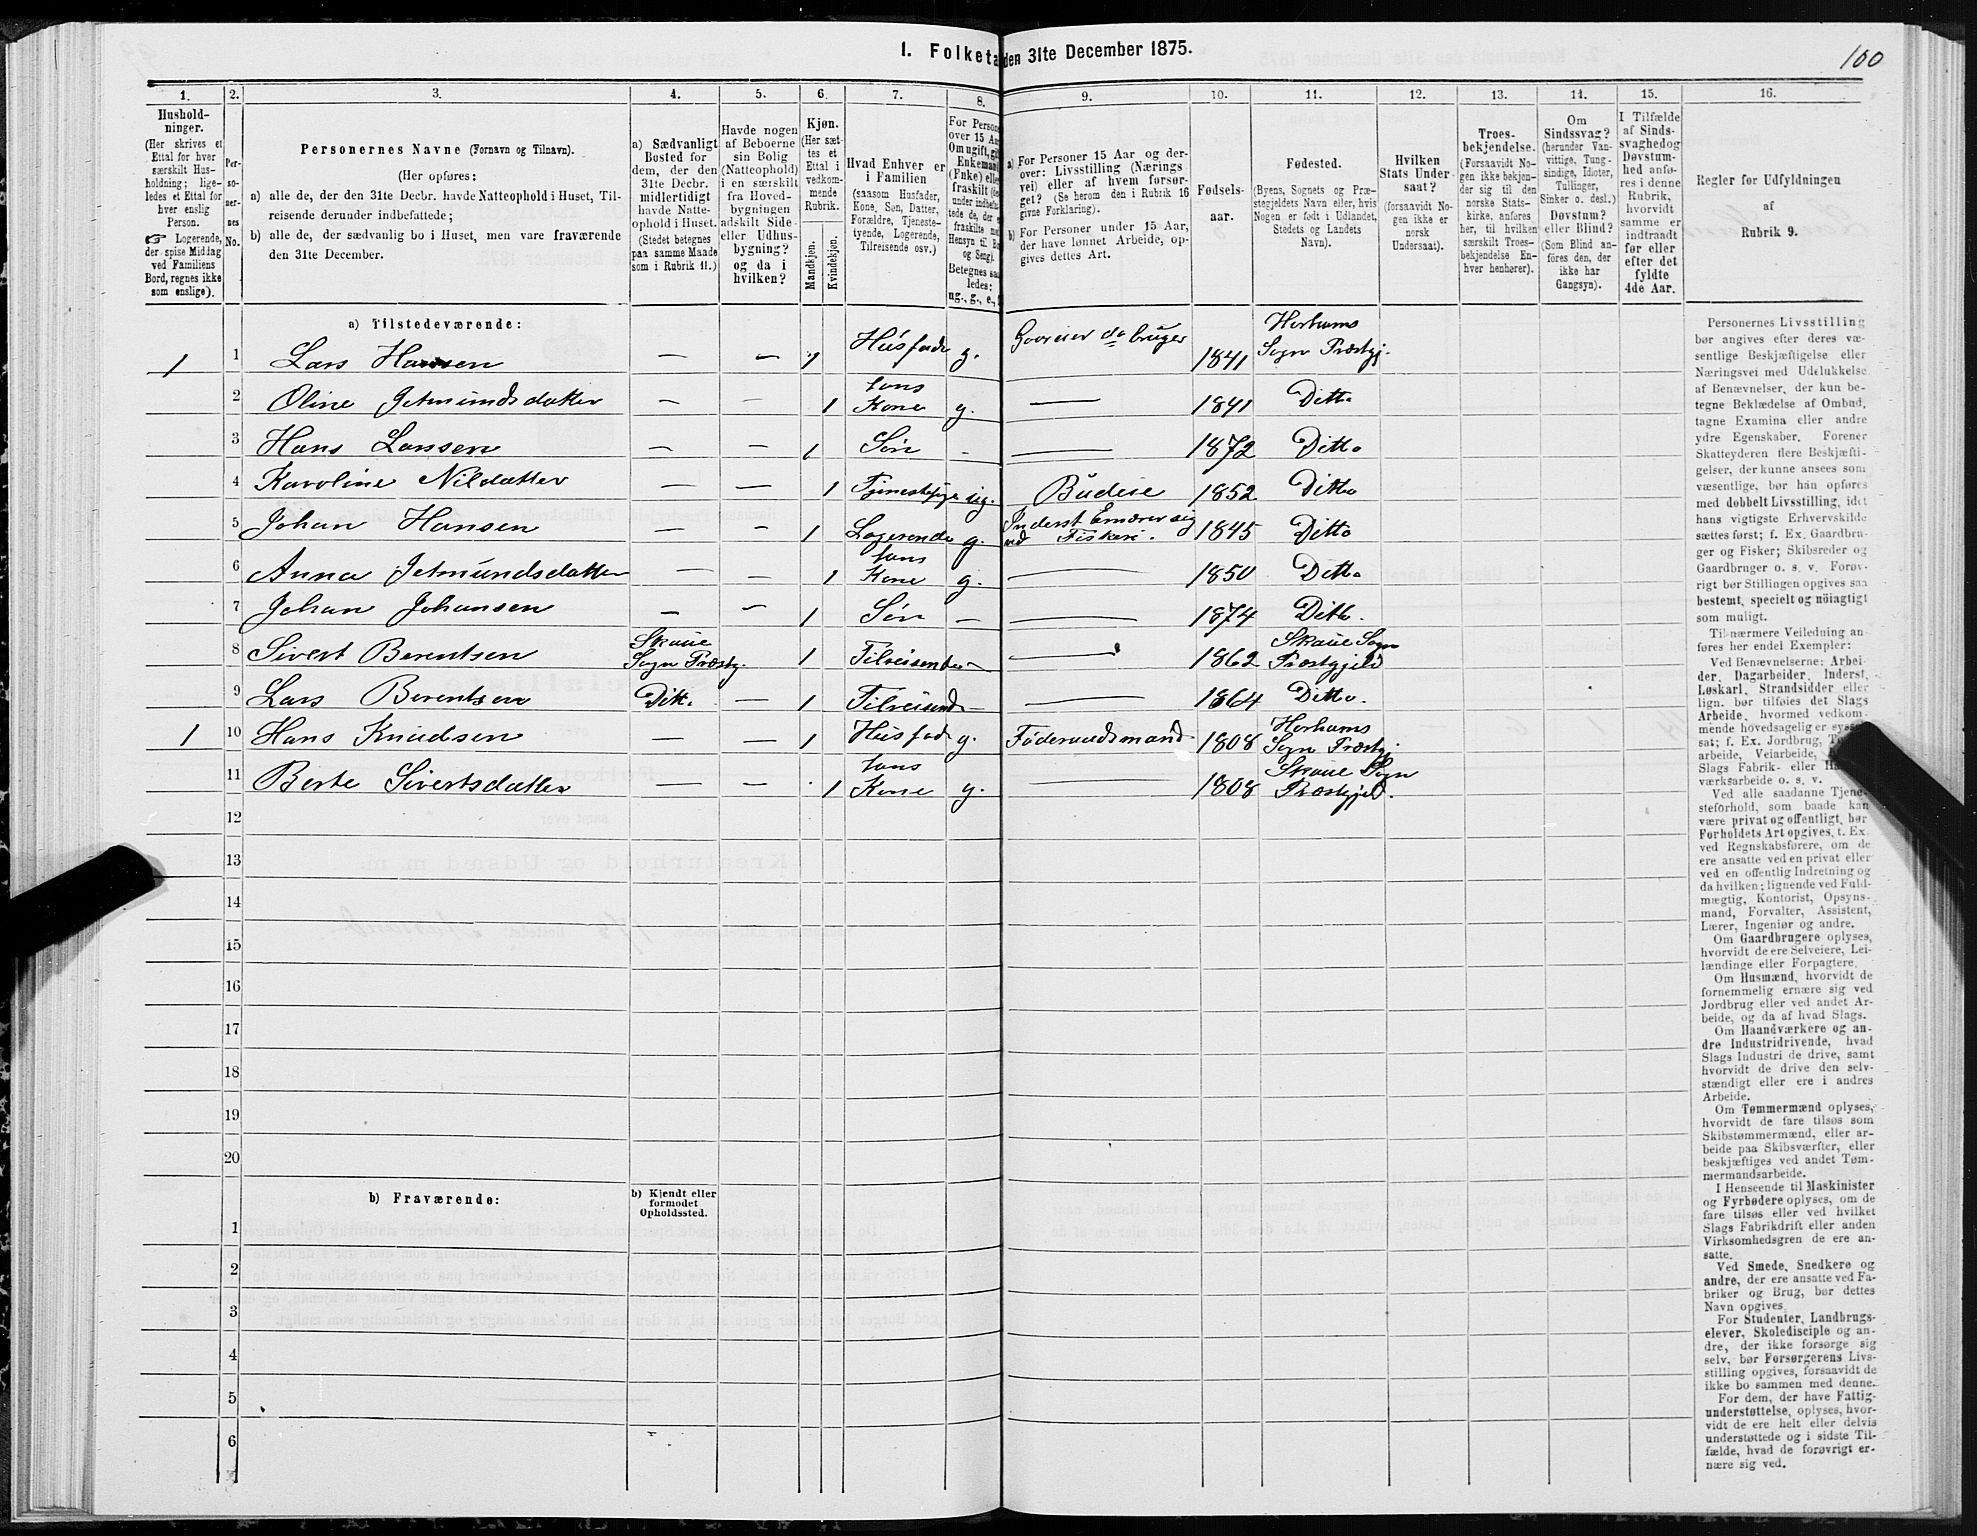 1. Folketa den 31te December 1875.
100
1. 2. 3. 4. 5. 6. 7. 8. 9. 10. 11. 12. 13. 14. 15. 16.
Hushold-
ninger.
(Her skrives et
Ettal for hver
særskilt Hus-
holdning; lige-
ledes et Ettal for
hver enslig
Person.
☞ Logerende,
der spise Middag
ved Familiens
Bord, regnes ikke
som enslige).
Per-
so-
ner-
nes
No.
Personernes Navne (Fornavn og Tilnavn).
(Her opføres:
a) alle de, der den 31te Decbr. havde Natteophold i Huset, Til-
reisende derunder indbefattede;
b) alle de, der sædvanlig bo i Huset, men vare fraværende
den 31te December.
a) Sædvanligt
Bosted for
dem, der den
31te Decbr.
midlertidigt
havde Natte-
ophold i Huset.
(Stedet betegnes
paa samme Maade
som i Rubrik 11.)
Havde nogen
af Beboerne
sin Bolig
(Natteophold)
i en særskilt
fra Hoved-
bygningen
adskilt Side-
eller Udhus-
bygning?
og da i
hvilken?
Kjøn.
(Her sæt-
tes et
Ettal i
vedkom-
mende
Rubrik.
Mandkjøn.
Kvindekjøn.
Hvad Enhver er
i Familien
(saasom Husfader,
Kone, Søn, Datter,
Forældre, Tjeneste-
tyende, Logerende,
Tilreisende osv.)
For Persone
over 15 Aa
Om ugift, gif
Enkeman
(Enke) elle
fraskilt (de
under indbefat-
tede de, der e
fraskilte me
Hensyn til Bo
og Seng).
Betegnes saa
ledes:
ug., g., e.,
a) For Personer 15 Aar og der-
over: Livsstilling (Nærings
vei) eller af hvem forsør-
get? (Se herom den i Rubrik 16
givne Forklaring).
b) For Personer under 15 Aar,
der have lønnet Arbeide, op-
gives dettes Art.
Fødsels-
aar.
Fødested.
(Byens, Sognets og Præ-
stegjeldets Navn eller, hvis
Nogen er født i Udlandet,
Stedets og Landets
Navn).
Hvilken
Stats Under-
saat?
(forsaavidt No-
gen ikke er
norsk
Undersaat).
Troes-
bekjendelse.
(Forsaavidt No-
gen ikke bekjen-
der sig til den
norske Stats-
kirke, anføres
her, til hvilken
særskilt Troes-
bekjendelse En-
hver henhører).
Om
Sindssvag?
(herunder Van-
vittige, Tung-
sindige, Idioter,
Tullinger,
Sinker o. desl.)
Døvstum?
eller Blind?
(Som Blind an-
føres den, der
ikke har
Gangsyn).
I Tilfælde
af Sinds-
svaghed og
Døvstum-
hed anfø-
res i denne
Rubrik,
hvorvidt
samme er
indtraadt
før eller
efter det
fyldte
4de Aar.
Regler for Udfyldningen
af
Rubrik 9.
a) Tilstedeværende:
1 1 Lars Hansen — — 1 Husfade g. Gaareier 1841 Horhams Sogn Præstgj.
2 Oline Jetmundsdatter — — 1 hans Kone g. — 1841 Ditto
3 Hans Larsen — — 1 Søn - — 1872 Ditto
4 Karoline Nildatter — — 1 Budeie 1852 Ditto
5 Johan Hansen — — 1 Logerende g. Inderst Ernærer sig ved Fiskeri. 1845 Ditto
6 Anna Jetmundsdatter — — 1 hans Kone g. — 1850 Ditto
7 Johan Johansen — — 1 Søn — — 1874 Ditto.
8 Sivert Berentsen Skaue Sogn Præstg. 1 Tilreisende — — 1862 Skaue Sogn Præstgjeld
9 Lars Berentsen Ditt. — 1 Tilreisend — — 1864 Ditto.
1 10 Hans Knudsen — — 1 Husfad g. Føderaadsmand 1808 Horhams Sogn Præstgj.
11 Berte Sivertsdatter — — 1 hans Kone g. — 1808 Skaue Sogn Præstgjeld.
12
13
14
15
16
17
18
19
20
b) Fraværende:
b) Kjendt eller
formodet
Opholdssted.
1
2
3
4
5
6
Personernes Livsstilling
bør angives efter deres væ-
sentlige Beskjæftigelse eller
Næringsvei med Udelukkelse
af Benævnelser, der kun be-
tegne Beklædelse af Ombud,
tagne Examina eller andre
ydre Egenskaber. Forener
Skatteyderen flere Beskjæfti-
gelser, der kunne ansees som
væsentlige, bør han opføres
med dobbelt Livsstilling, idet
hans vigtigste Erhvervskilde
sættes først; f. Ex. Gaardbru-
ger og Fisker; Skibsreder og
Gaardbruger o. s. v. Forøv-
rigt bør Stillingen opgives saa
bestemt, specielt og nöiagtigt
som muligt.
Til nærmere Veiledning an-
føres her endel Exempler:
Ved Benævnelserne: Arbei-
der, Dagarbeider, Inderst,
Løskarl, Strandsidder eller
lign. bør tilføies det Slags
Arbeide, hvormed vedkom-
mende hovedsagelig er syssel
sat; f. Ex. Jordbrug,
arbeide, Veiarbeide,
Slags Fabrik- eller
værksarbeide o. s. v.
Ved alle saadanne Tjene-
steforhold, som baade kan
være privat og offentligt, bør
Forholdets Art opgives, t. Ex.
ved Regnskabsførere, om de
ere ansatte ved en privat eller
ved en offentlig Indretning og
da hvilken; lignende ved Fuld-
mægtig, Kontorist, Opsyns-
mand, Forvalter, Assistent,
Lærer, Ingeniør og andre.
Om Gaardbrugere oplyses,
hvorvidt de ere Selveiere, Lei-
lændinge eller Forpagtere.
Om Husmænd, hvorvidt de
fornemmelig ernære sig ved
Jordbrug eller ved andet Ar-
beide, og da af hvad Slags.
Om Haandværkere og an-
dre Industridrivende, hvad
Slags Industri de drive, samt
hvorvidt de drive den selv-
stændigt eller ere i andres
Arbeide.
Om Tømmermænd oplyses,
hvorvidt de fare tilsøs som
Skibstømmermænd, eller ar-
beide paa Skibsværfter, eller
beskjæftiges ved andet Tøm-
mermandsarbeide.
I Henseende til Maskinister
og Fyrbødere oplyses, om de
fare tilsøs eller ved hvilket
Slags Fabrikdrift eller anden
Virksomhedsgren de ere an-
satte.
Ved Smede, Snedkere og
andre, der ere ansatte ved Fa-
briker og Brug, bør dettes
Navn opgives.
For Studenter, Landbrugs-
elever, Skoledisciple og an-
dre, der ikke forsørge sig
selv, bør Forsørgerens Livs-
stilling opgives, forsaavidt de
ikke bo sammen med denne.
For dem, der have Fattig-
understøttelse, oplyses, hvor-
vidt de ere helt eller delvis
understøttede og i sidste Til-
fælde, hvad de forøvrigt er-
nære sig ved.